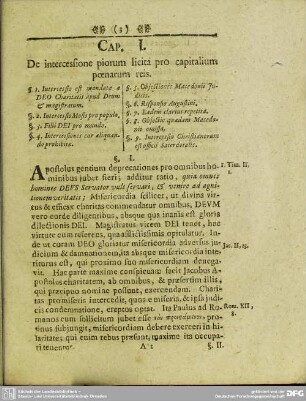 (1)
CAP. I.
De intercessione piorum licita pro capitalium
pœnarum reis.
§. 1. Intercessio est mandata a
DEO Charitatis apud Deum
& magistratum.
§. 2. Intercessio Mosis pro populo.
§. 3. Filii DEI pro mundo.
§. 4. Intercessiones cur aliquan-
do prohibita.
§. 5. Objectiones Macedonii Ju-
§. 6. Responsio Augustini.
§. 7. Eadem clarior repetita.
§. 8. Objectio quædam Macedo-
nii omissa.
§. 9. Intercessio Christianorum
est officii Sacerdotalis.
§. I.
Apostolus gentium deprecationes pro omnibus ho-
minibus jubet fieri; additur ratio, quia omnes
homines DEUS Servator vult servari, & venire ad agni-
tionem veritatis; Misericordia scilicet, ut divina virtus
& efficax charitas commendatur omnibus, DEUM
vero corde diligentibus, absque qua inanis est gloria
dilectionis DEI. Magistratus vicem DEI tenet, hac
virtute cum referens, quam felicissimus opitulatur. In-
de ut coram DEO gloriatur misericordia adversus judi-
cium & damnationem, ita absque misericordia inte-
rimatur est, qui proximo suo misericordiam denega-
vit. Hac parte maxime conspicuam facit Jacobus A-
postolus charitatem, ab omnibus, & præsertim illis,
qui præcipuo nomine possunt, exercendam. Charit-
tas promiseris intercedit, quos e miseria, & ipsa judi-
cis condemnatione, ereptos optat. Ita Paulus ad Ro-
manos cum sollicitum jubet esse
tinus subjungit, misericordiam debere exerceri in hi-
laritate; qui enim rebus præsunt, maxime im occupa-
ti tenentur.
A 1
§. II.
1. Tim. II,
1.
Jac. II, 13.
Rom. XII,
8.